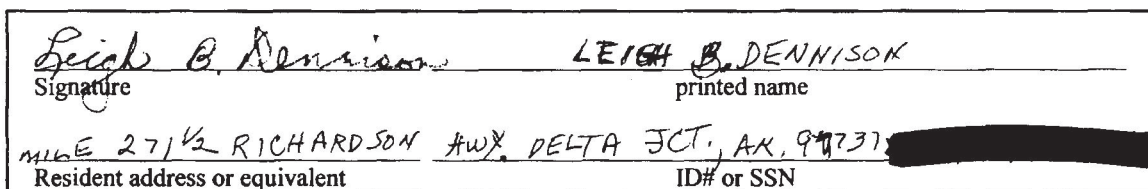 Leigh B. Dennison LEIGH B. DENNISON
Signature printed name
MILE 271 1/2 RICHARDSON HWY. DELTA JCT., AK. 99737
Resident address or equivalent ID# or SSN